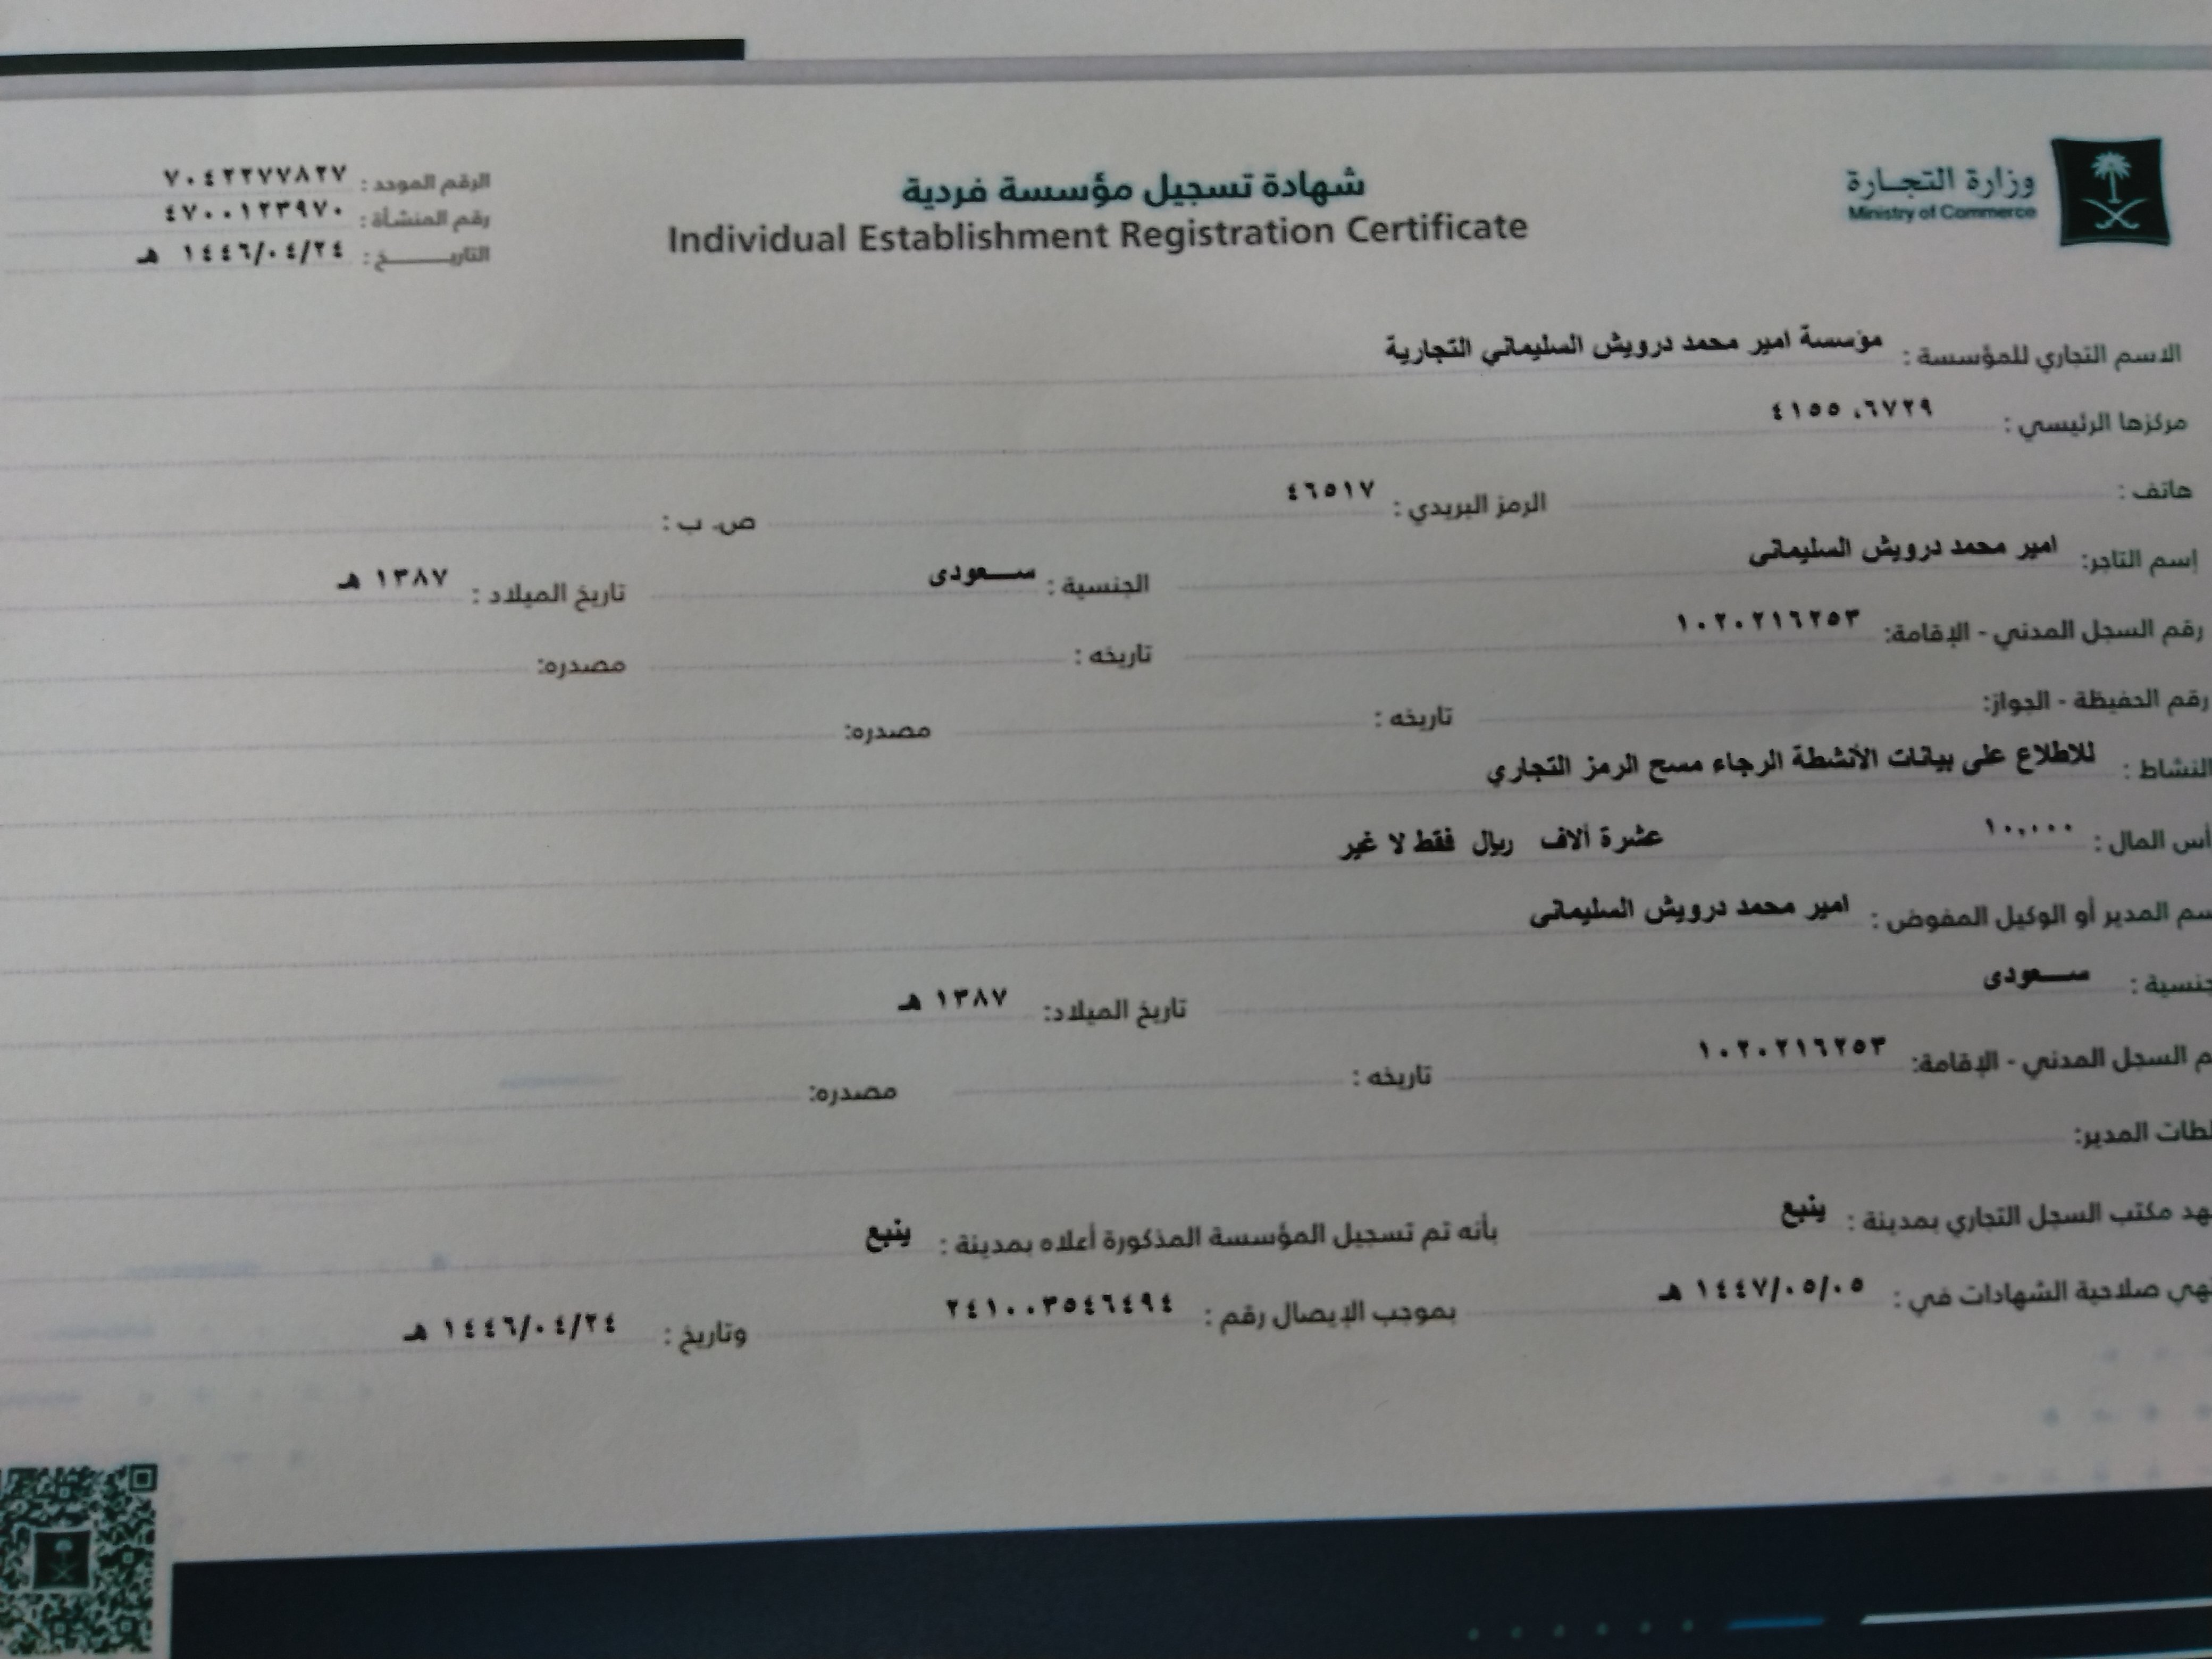 وزارة التجارة
Ministry of Commerce
شهادة تسجيل مؤسسة فردية
Individual Establishment Registration Certificate
الرقم الموحد : ٧٠٤٢٢٧٧٨٢٧
رقم المنشأة : ٤٧٠٠١٢٣٩٧٠
التاريـــــخ : ١٤٤٦/٠٤/٢٤ هـ
الاسم التجاري للمؤسسة : مؤسسة امير محمد درويش السليماني التجارية
مركزها الرئيسي : ٤١٥٥ ،٦٧٢٩
هاتف : الرمز البريدي : ٤٦٥١٧ ص. ب :
إسم التاجر: امير محمد درويش السليمانى الجنسية : ســعودى تاريخ الميلاد : ١٣٨٧ هـ
رقم السجل المدني - الإقامة: ١٠٢٠٢١٦٢٥٣ تاريخه : مصدره:
رقم الحفيظة - الجواز: تاريخه : مصدره:
النشاط : للاطلاع على بيانات الأنشطة الرجاء مسح الرمز التجاري
أس المال : ١٠,٠٠٠ عشرة ألاف ريال فقط لا غير
سم المدير أو الوكيل المفوض : امير محمد درويش السليمانى
جنسية : ســعودى تاريخ الميلاد: ١٣٨٧ هـ
م السجل المدني - الإقامة: ١٠٢٠٢١٦٢٥٣ تاريخه : مصدره:
لطات المدير:
هد مكتب السجل التجاري بمدينة : ينبع بأنه تم تسجيل المؤسسة المذكورة أعلاه بمدينة : ينبع
هي صلاحية الشهادات في : ١٤٤٧/٠٥/٠٥ هـ بموجب الإيصال رقم : ٢٤١٠٠٣٥٤٦٤٩٤ وتاريخ : ١٤٤٦/٠٤/٢٤ هـ